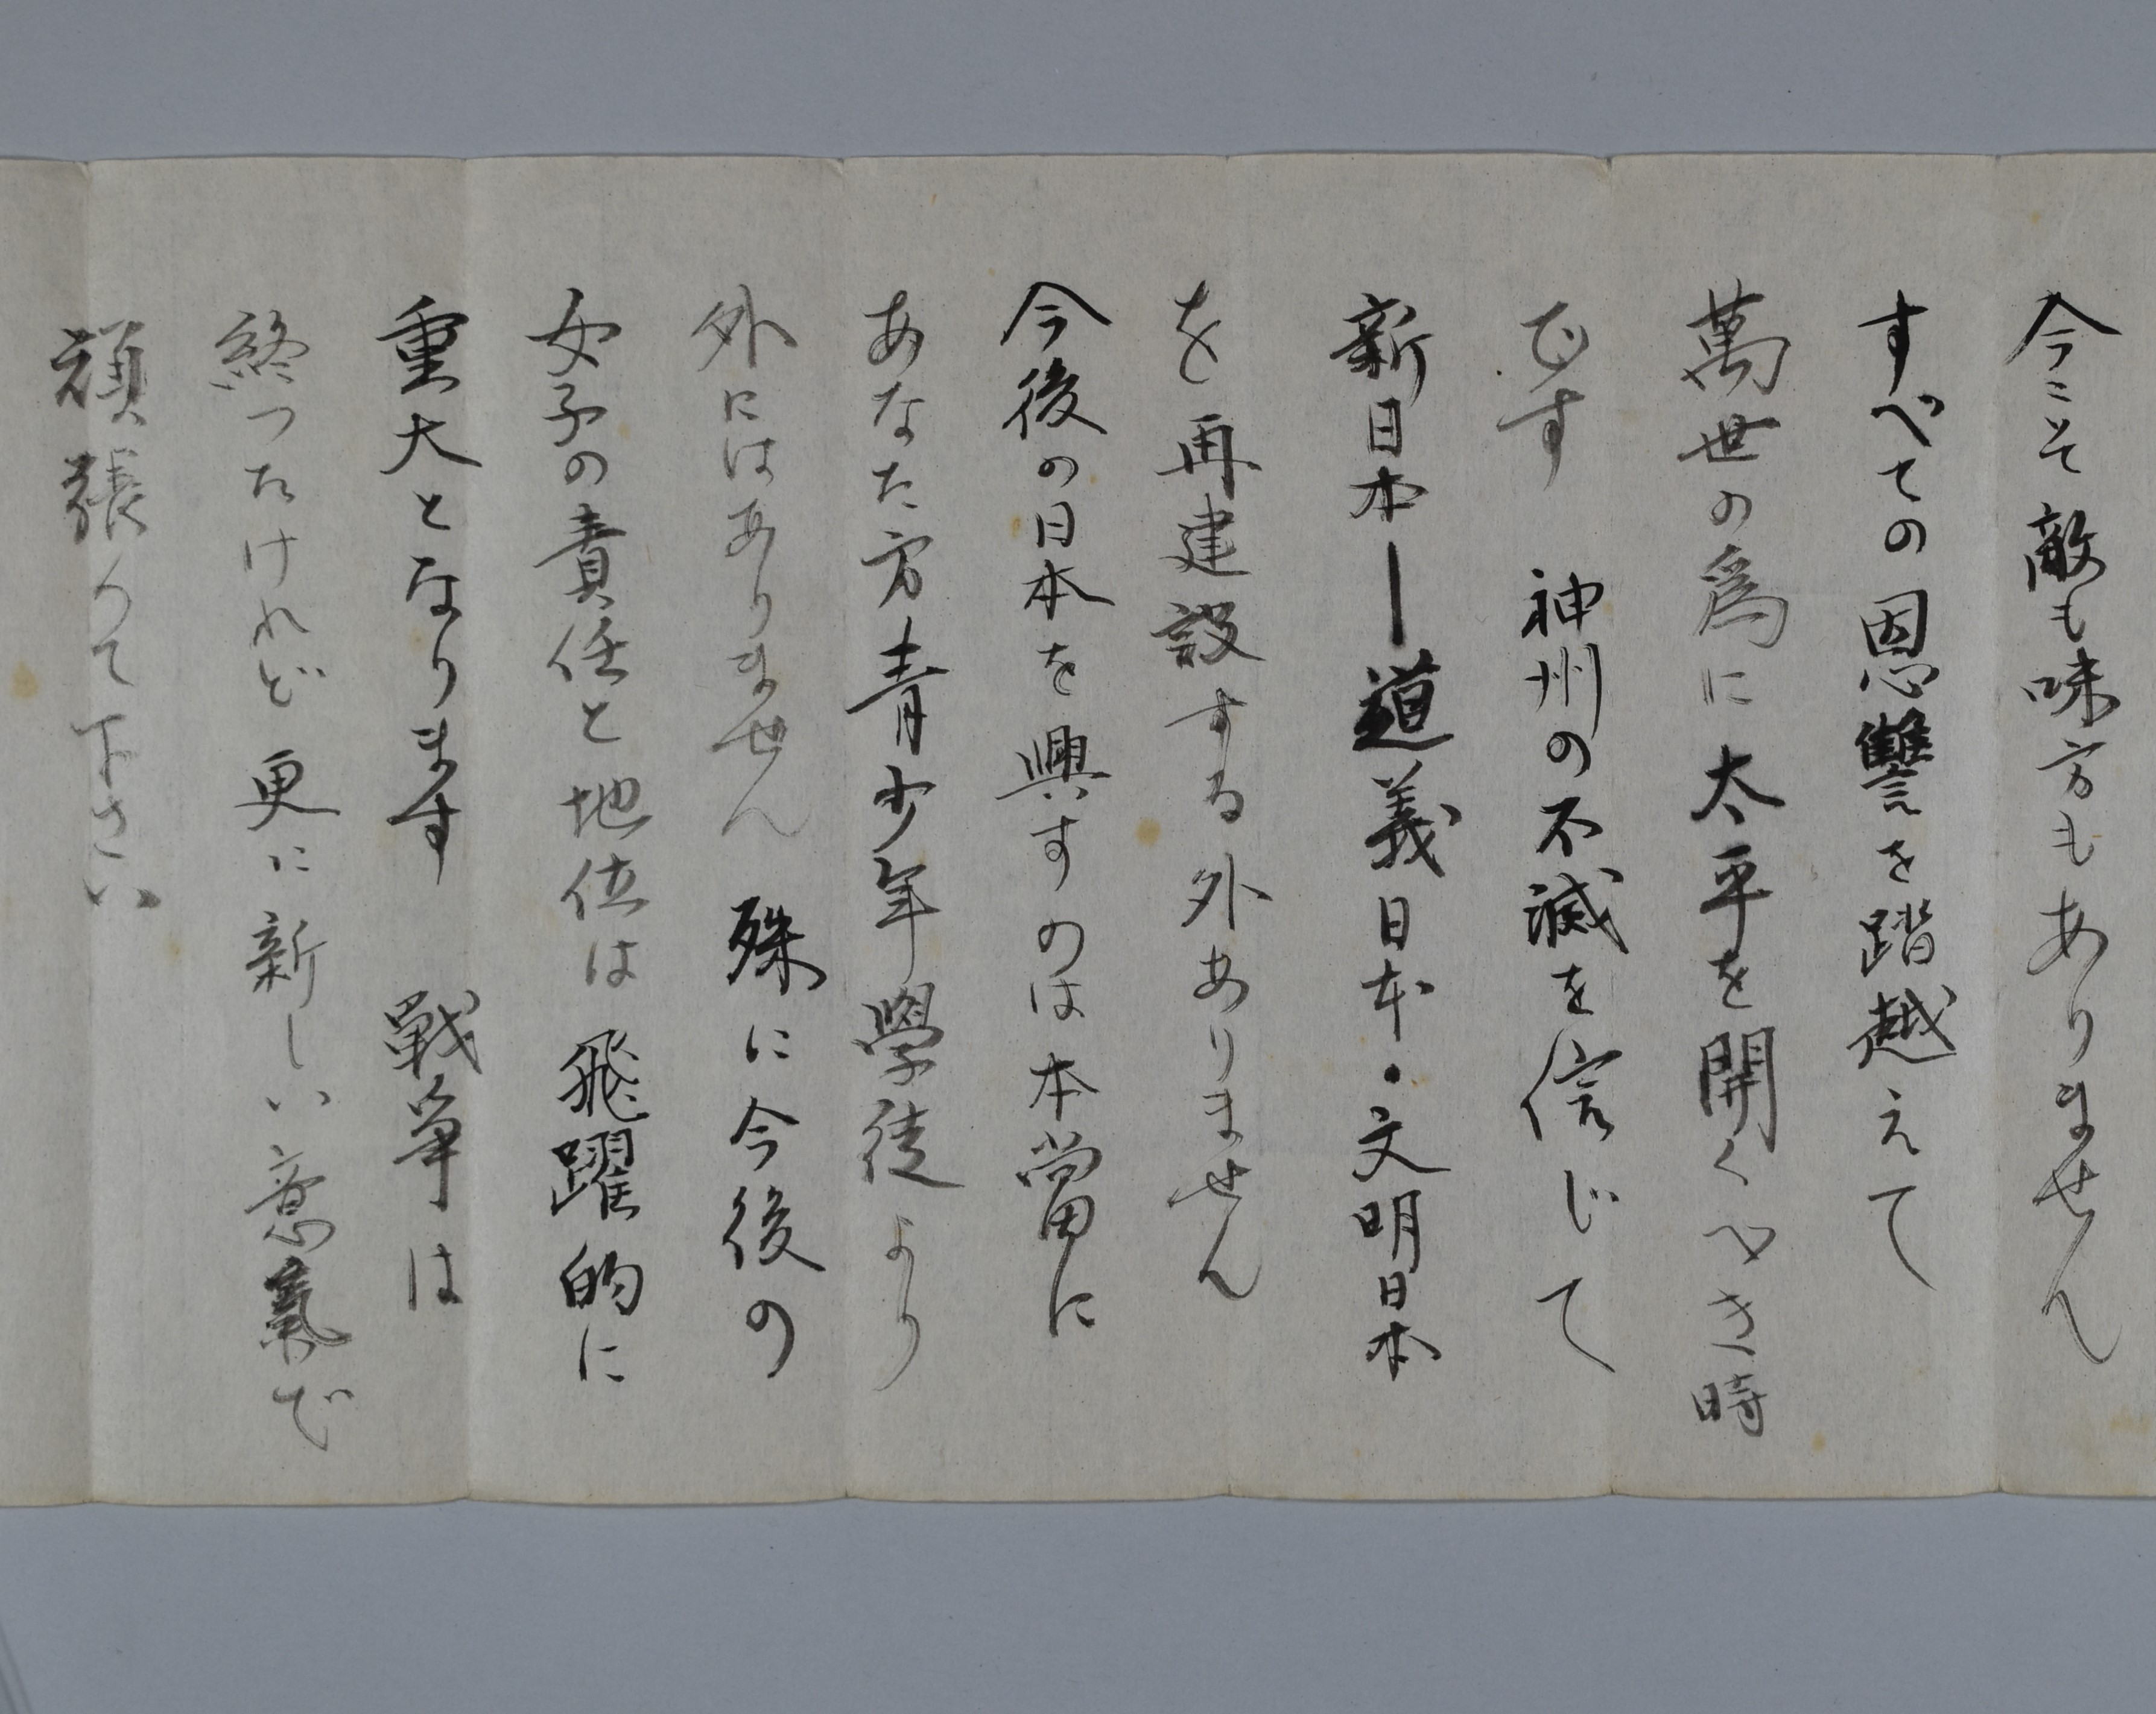 今こそ敵も味方もありません
すべての恩讐を踏越えて
萬世の為に太平を開くべき時
です　神州の不滅を信じて
新日本ー道義日本・文明日本
を再建設する外ありません
今後の日本を興すのは本當に
あなた方青少年學徒より
外にはありません　殊に今後の
女子の責任と地位は飛躍的に
重大となります　戰争は
終つたけれど更に新しい意氣で
頑張つて下さい